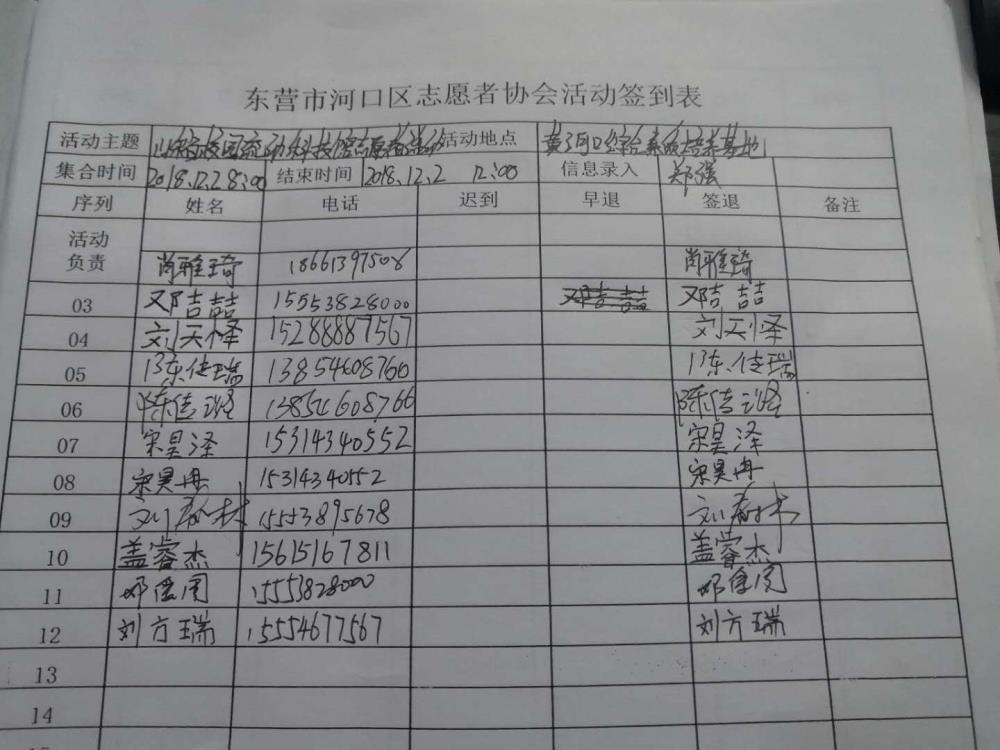 东营市河口区志愿者协会活动签到表
活动主题 活动地点
集合时间 2018.12.2 8:00 结束时间 2018.12.2 12:00 信息录入 郑强
序列 姓名 电话 迟到 早退 签退 备注
活动
负责 肖雅琦 18661397508 肖雅琦
03 邓吉喆 15553828000 邓吉喆 邓吉喆
04 刘天怿 15288887567 刘天怿
05 陈佳瑞 13854608766 陈佳瑞
06 13854608766
07 宋昊泽 15314340552 宋昊泽
08 宋昊冉 15314340552 宋昊冉
09 15553895678
10 盖睿杰 15615167811 盖睿杰
11 15553828000
12 刘方瑞 15554677567 刘方瑞
13
14